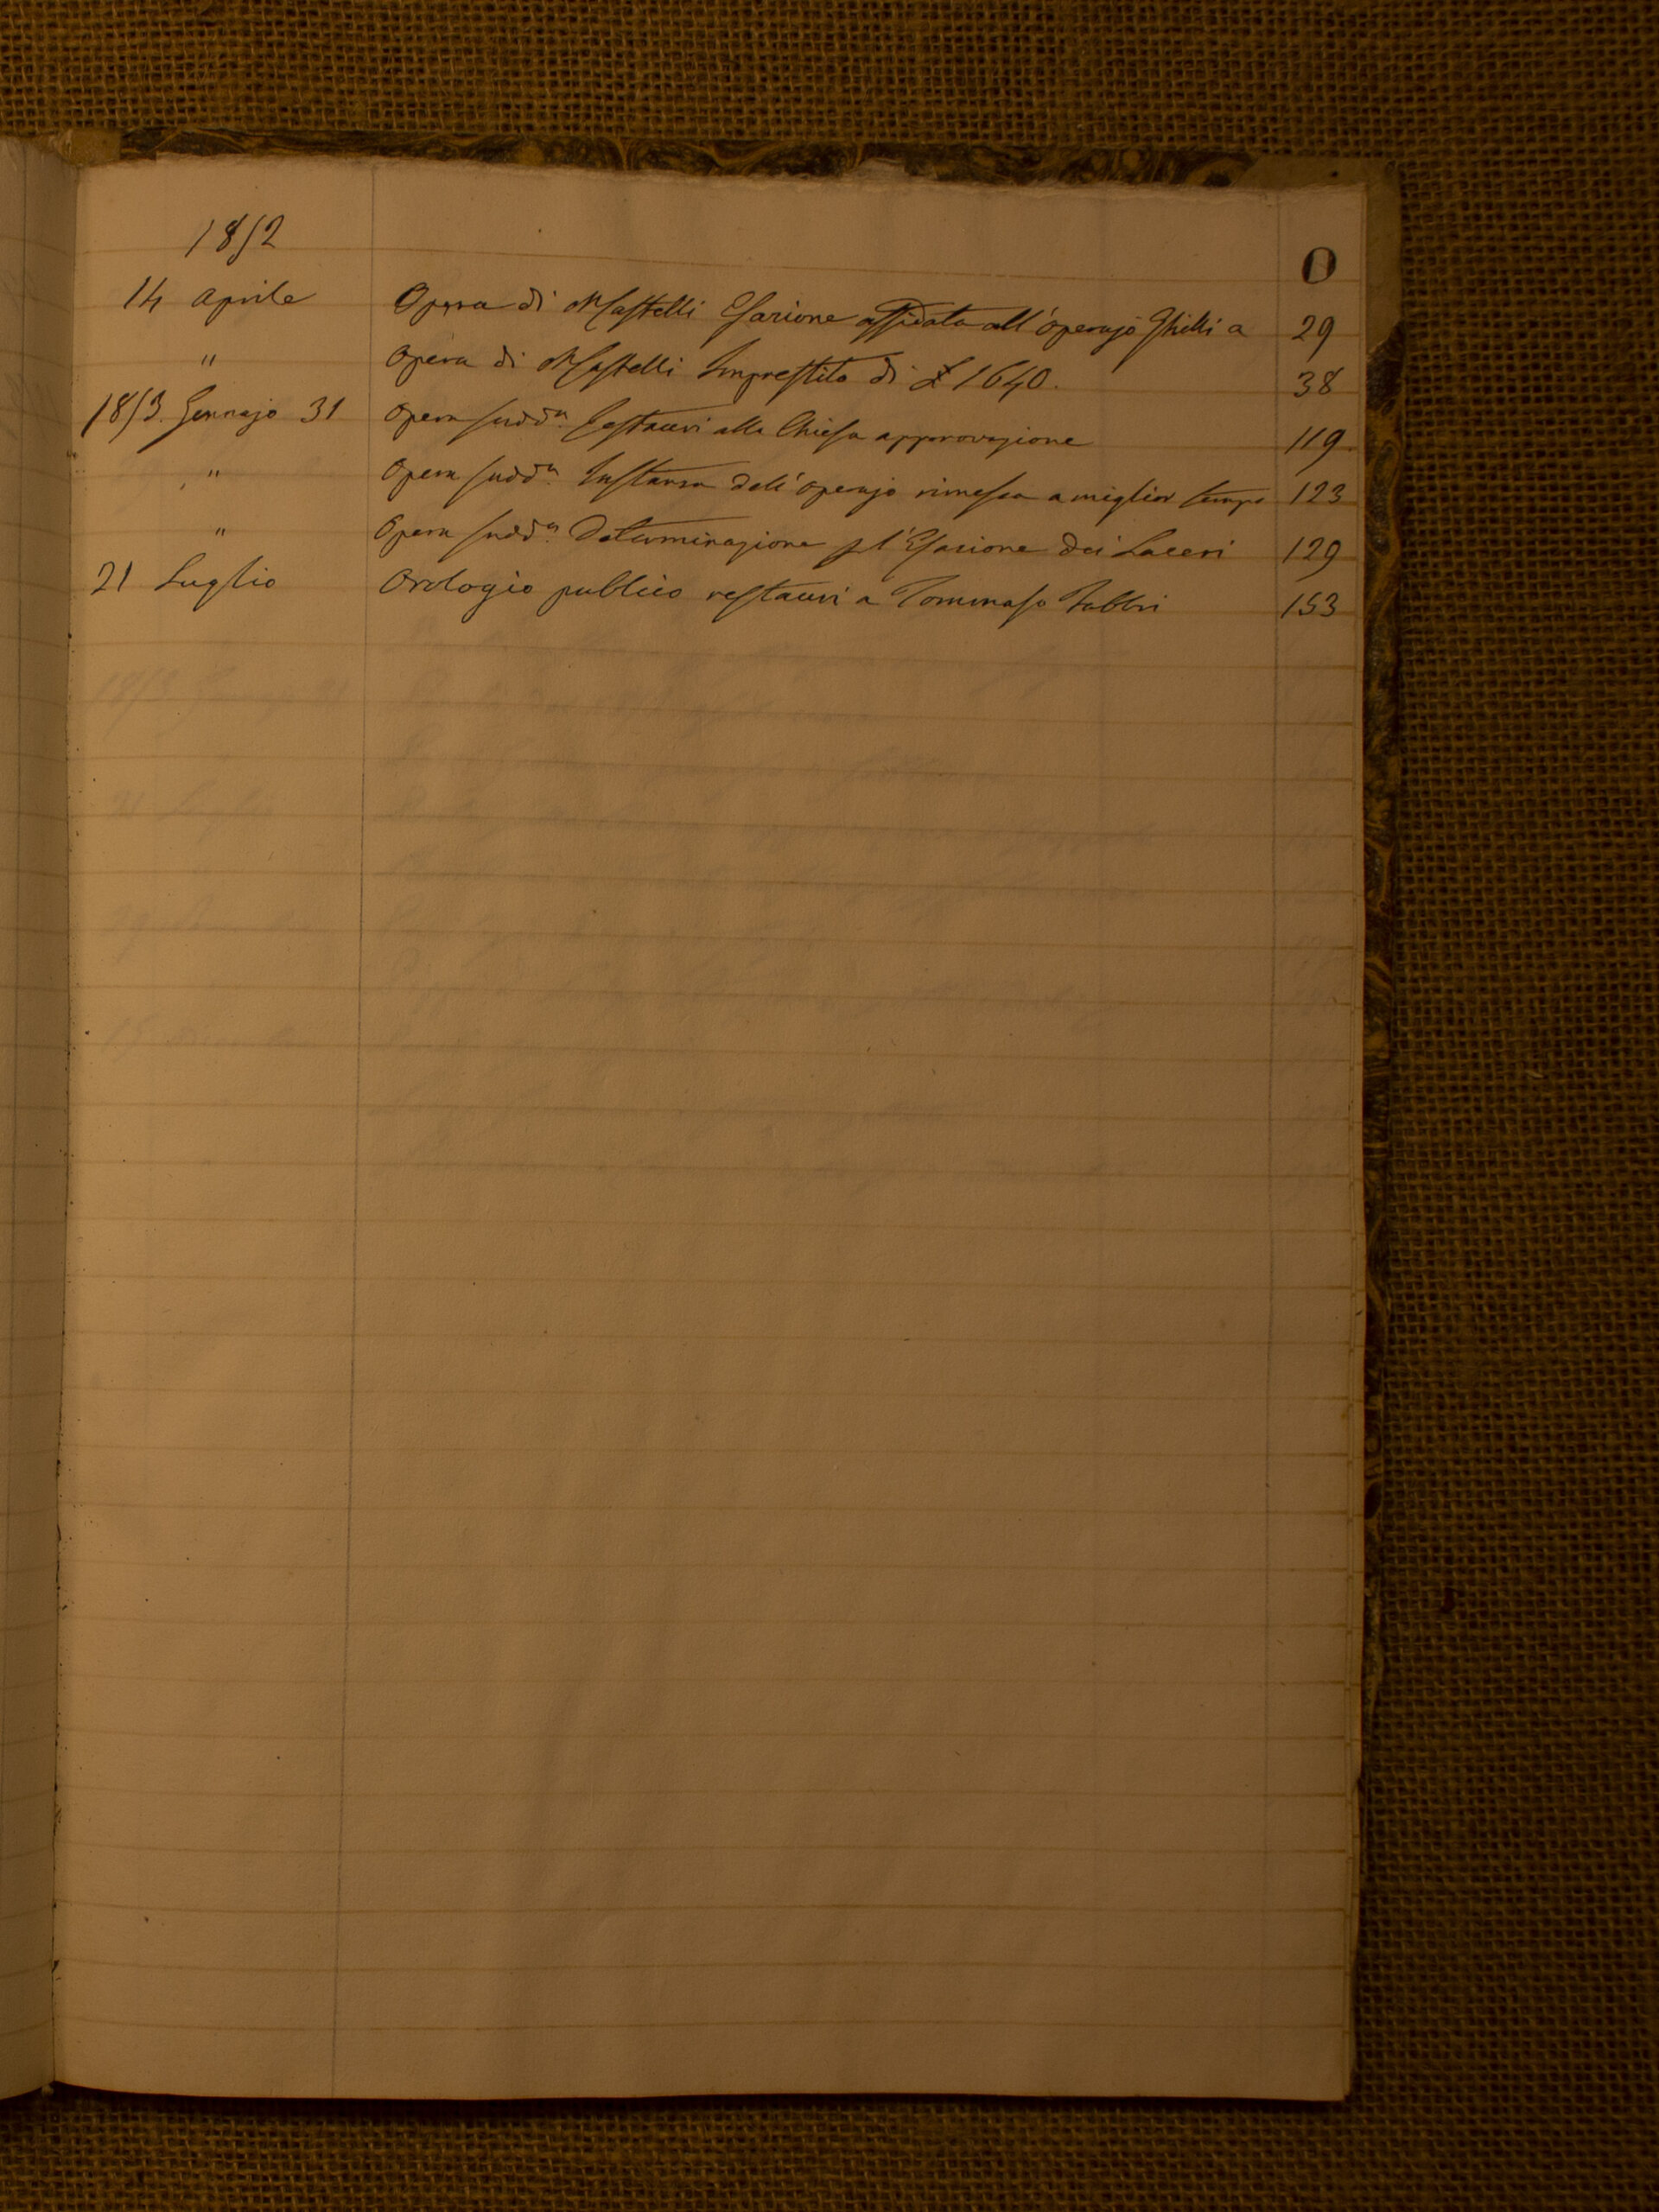 1852
O
14 Aprile Opera di Mastelli Esazione affidata all'operajo Ghilli a 29
" Opera di Mastelli Imprestito di £ 1640. 38
1853. Gennajo 31 Opera sudd.a Restauri alla Chiesa approvazione 119
" Opera sudd.a Instanza dell'operajo rimessa a miglior tempo 123
" Opera sudd.a Determinazione p l'Esazione dei 129
21 Luglio Orologio publico restauri a Tommaso Fabbri 153